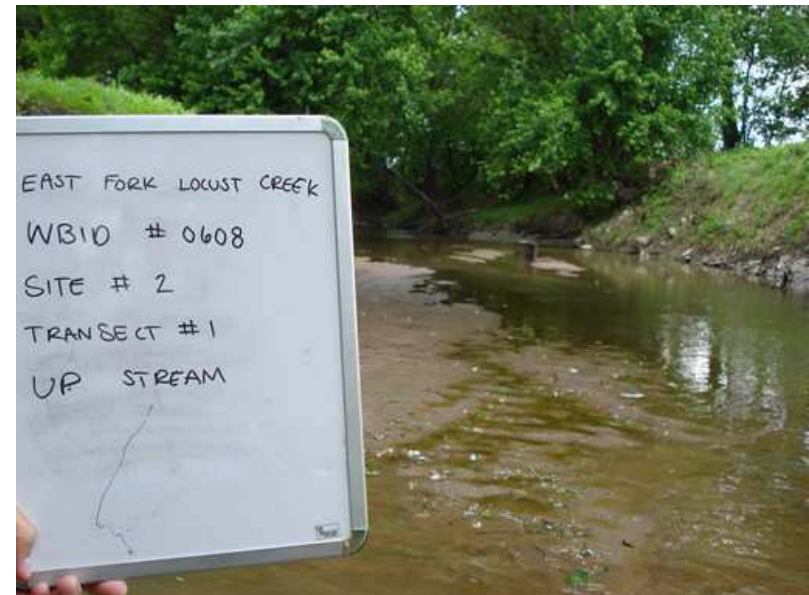 EAST FORK LOCUST CREEK
WBID # 0608
SITE # 2
TRANSECT #1
UP STREAM